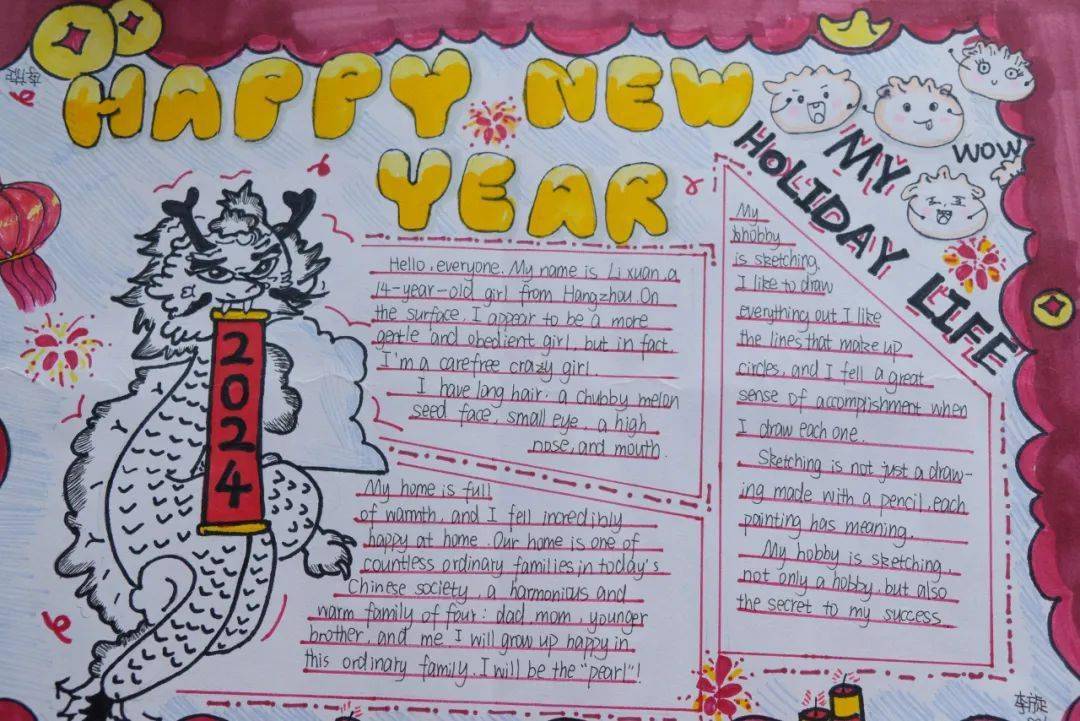 HAPPY NEW
YEAR
MY
HOLIDAY LIFE
WOW
2024
Hello, everyone. My name is Li xuan, a
14-year-old girl from Hangzhou. On
the surface, I appear to be a more
gentle and obedient girl, but in fact
I'm a carefree crazy girl.
I have lang hair, a chubby melon
seed face, small eye, a high
nose, and mouth.
My home is full
of warmth, and I fell incredibly
happy at home. Our home is one of
countless ordinary families, in today's
Chinese society, a harmonious and
warm family of four: dad, mom, younger
brother, and me. I will grow up happy in
this ordinary family. I will be the "pearl"!
My
hobby
is sketching,
I like to draw
everything out, I like
the lines that make up
circles, and I fell a great
sense of accomplishment when
I draw each one.
Sketching is not just a draw-
ing made with a pencil, each
painting has meaning.
My hobby is sketching,
not only a hobby, but also
the secret to my success